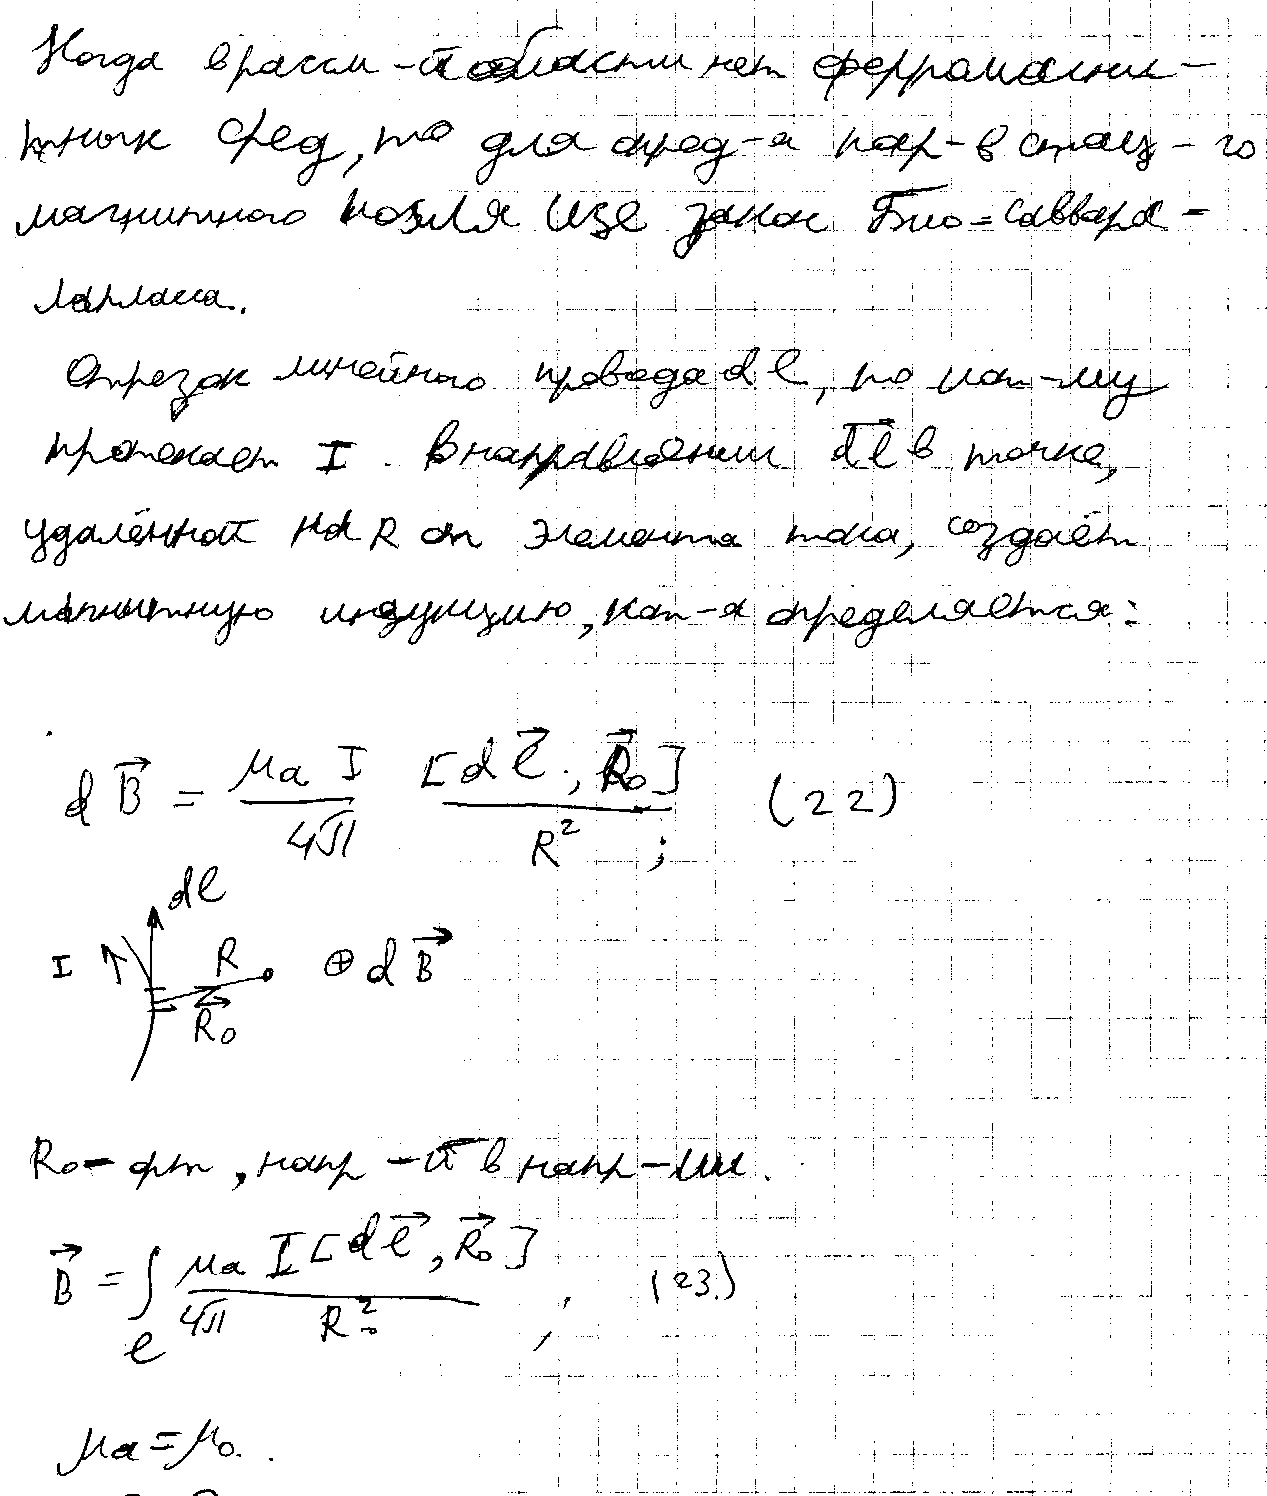 Когда в рассм-й области нет ферромагни-
тных сред, то для опред-я пар-в стац-го
магнитного поля исп закон Био-Саввара-
Лапласа.
Отрезок линейного провода dl, по кот-му
протекает I в направлении dl⃗ в точке,
удалённой на R от элемента тока, создаёт
магнитную индукцию, кот-я определяется:
dB⃗ = μa I / 4π [dl⃗, R⃗₀] / R² ; (22)
dl
I R ⊕ dB⃗
R⃗₀
R₀ - орт, напр-й в напр-ии.
B⃗ = ∫ₗ μa I [dl⃗, R⃗₀] / 4π R² , (23)
μa = μ₀.